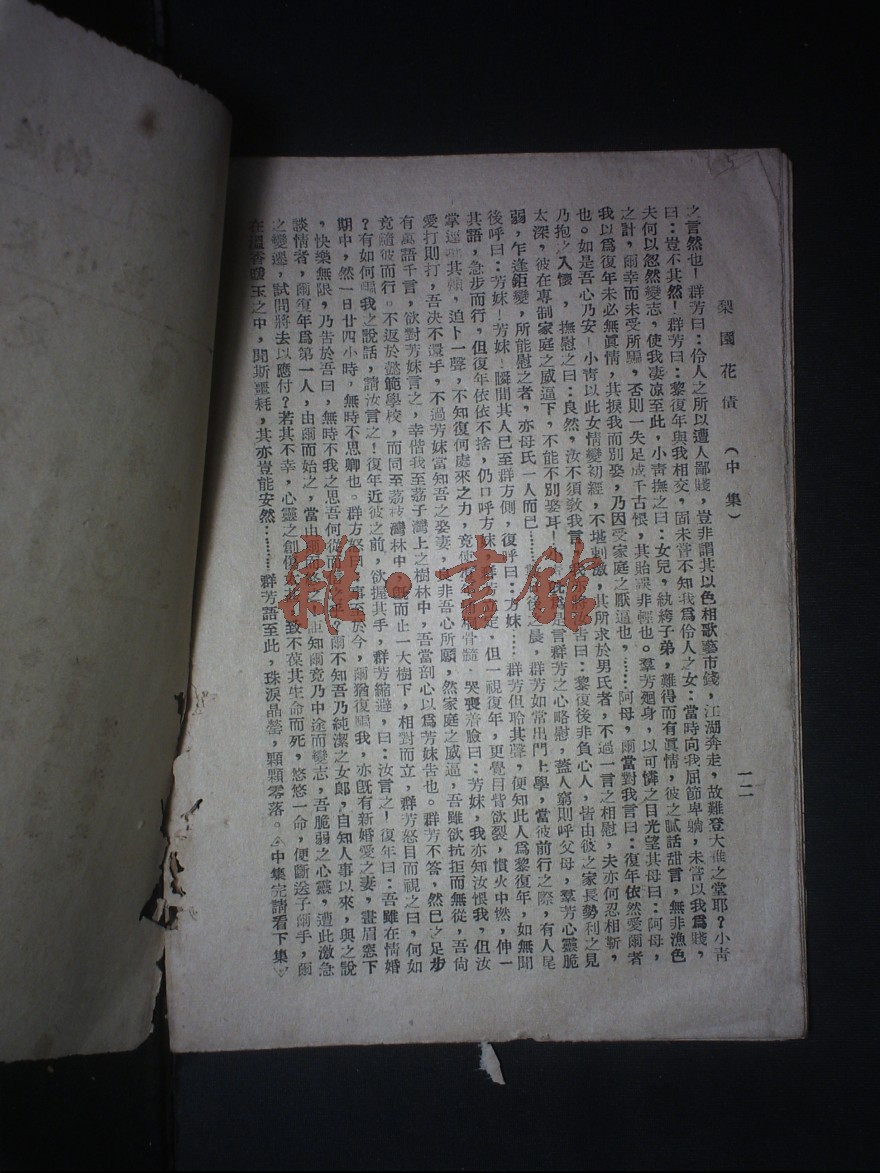 梨園花債 (中集)
一二
之言然也！群芳曰：伶人之所以遭人鄙賤，豈非謂其以色相歌藝市錢，江湖奔走，故難登大雅之堂耶？小靑
曰：豈不其然！群芳曰：黎復年與我相交，固未嘗不知我爲伶人之女：當時向我屈節卑躺，未嘗以我爲賤，
夫何以忽然變志，使我凄凉至此，小靑撫之曰：女兒，紈袴子弟，難得而有眞情，彼之膩話甜言，無非漁色
之計，爾幸而未受所騙，否則一失足成千古恨，其貽誤非輕也。羣芳廻身，以可憐之目光望其母曰：阿母，
我以爲復年未必無眞情，其捩我而別娶，乃因受家庭之厭逼也，……阿母，爾當對我言曰：復年依然愛爾者
也。如是吾心乃安！小靑以此女情變初經，不堪刺激，其所求於男氏者，不過一言之相慰，夫亦何忍相靳，
乃抱之入懷，撫慰之曰：良然，汝不須敎我言，告曰：黎復後非負心人，皆由彼之家長勢利之見
太深，彼在專制家庭之威逼下，不能不別娶耳！小是言群芳之心略慰，蓋人窮則呼父母，羣芳心靈脆
弱，乍逢鉅變，所能慰之者，亦母氏一人而已……後之晨，群芳如常出門上學，當彼前行之際，有人尾
後呼曰：芳妹！芳妹！瞬間其人已至群方側，復呼曰：芳妹……群芳但聆其聲，便知此人爲黎復年，如無聞
其語，急步而行，但復年依依不捨，仍口呼方妹，定，但一視復年，更覺目眥欲裂，憤火中燃，伸一
掌迎其頰，迫卜一聲，不知復何處來之力，竟使骨髓。哭喪着臉曰：芳妹，我亦知汝恨我，但汝
愛打則打，吾决不還手，不過芳妹當知吾之娶妻，非吾心所願，然家庭之威逼，吾雖欲抗拒而無從，吾尙
有萬語千言，欲對芳妹言之，幸偕我至荔子灣上之樹林中，吾當剖心以爲芳妹吿也。群芳不答，然已之足步
竟隨彼而行。不返於懿範學校，而同至荔枝灣林中，旣而止一大樹下，相對而立，群芳怒目而視之曰，何如
？有如何騙我之說話，請汝言之！復年近彼之前，欲握其手，群芳縮避，曰：汝言之！復年曰：吾雖在情婚
期中，然一日廿四小時，無時不思卿也。群方怒曰：事至於今，爾猶復騙我，亦旣有新婚愛之妻，畫眉窻下
，快樂無限，乃吿於吾曰，無時不我之思吾何從而爾不知吾乃純潔之女郞，自知人事以來，與之說
談情者，爾復年爲第一人，由爾而始之，當由爾而知爾竟乃中途而變志，吾脆弱之心靈，遭此激急
之變遷，試問將去以應付？若其不幸，心靈之創傷致不葆其生命而死，悠悠一命，便斷送子爾手，爾
在溫香暖玉之中，聞斯噩耗，其亦豈能安然………群芳語至此，珠淚晶瑩，顆顆零落。△中集完請看下集▽
雜·書舘